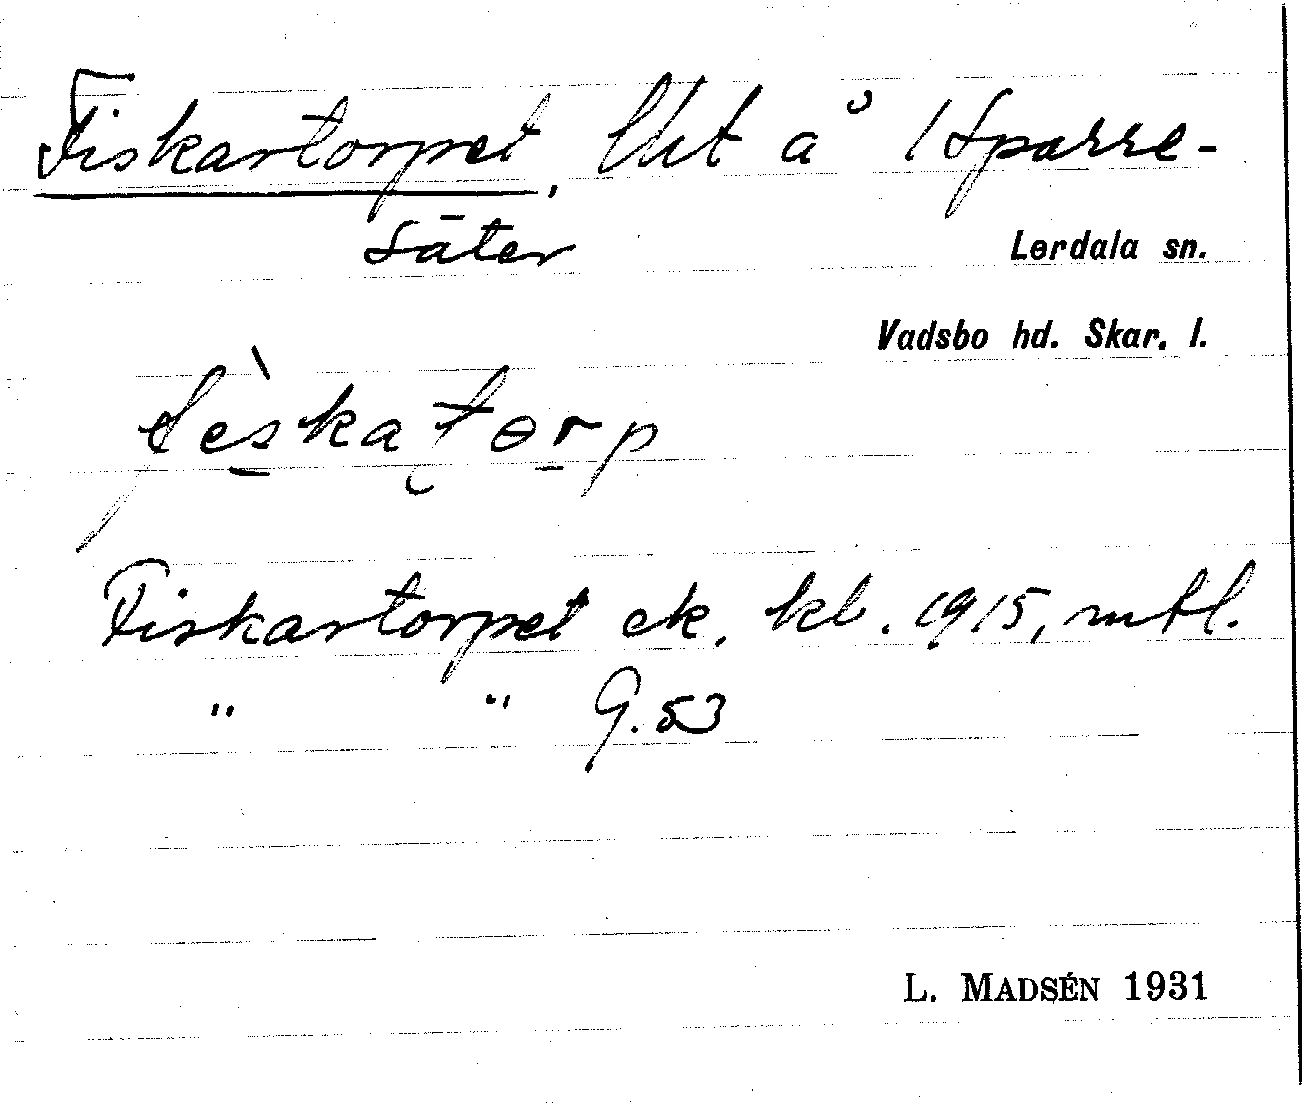 Fiskartorpet, lht å 1 Sparre-
säter
Lerdala sn.
Vadsbo hd. Skar. l.
fèskatorp
Fiskartorpet ek. kb. 1915, mtl.
" " G. 53
L. MADSÉN 1931